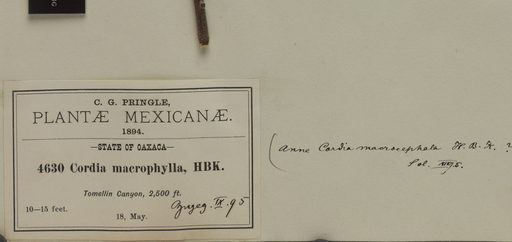 C. G. PRINGLE,
PLANTÆ MEXICANÆ.
1894.
STATE OF OAXACA
4630 Cordia macrophylla, HBK.
Tomellin Canyon, 2,500 ft.
10—15 feet.
18, May.
IX. 95
(Anne Cordia macrocephala H. B. K. ?